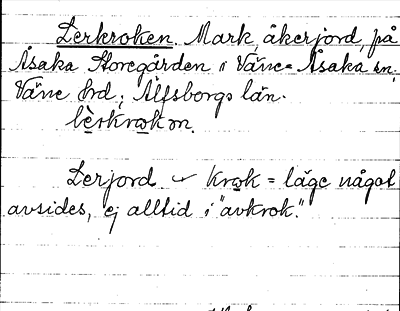 Lerkroken. Mark, åkerjord, på
Åsaka Storegården i Väne-Åsaka sn,
Väne hrd, Älfsborgs län.
lè̱rkro̱kən.
Lerjord – kro̱k = läge något
avsides, ej alltid i "avkrok."